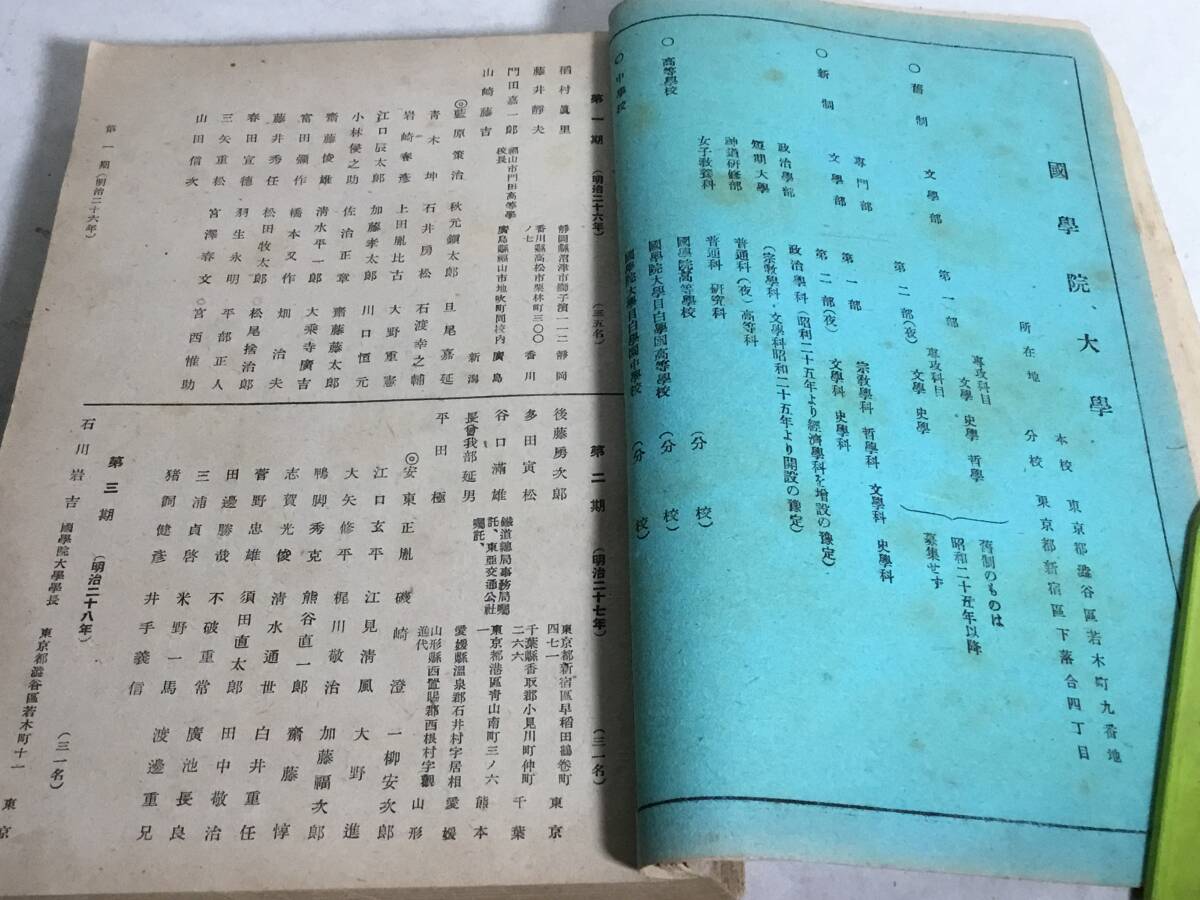 國學院大學
所在地 本校 東京都澁谷區若木町九番地
分校 東京都新宿區下落合四丁目
○舊制 文學部 第一部 專攻科目 文學 史學 哲學
第二部(夜) 專攻科目 文學 史學
舊制のものは
昭和二十五年以降
募集せず
專門部
○新制 文學部 第一部 宗教學科 哲學科 文學科 史學科
第二部(夜) 文學科 史學科
政治學部 政治學科(昭和二十五年より經濟學科を增設の豫定)
短期大學 (宗教學科・文學科昭和二十五年より開設の豫定)
神道研修部 普通科(夜)高等科
女子教養科 普通科 研究科
○高等學校 國學院高等學校 (分校)
國學院大學目白學園高等學校 (分校)
○中學校 國學院大學目白學園中學校 (分校)
第一期 (明治二十六年) (三五名)
稻村眞里 靜岡縣沼津市獅子濱一一二 靜岡
藤井靜夫 香川縣高松市栗林町三〇〇ノ七 香川
門田嘉一郎 福山市門田高等學校長 廣島縣福山市地吹町同校内 廣島
山崎藤吉 新潟
◎藍原策治 秋元鎭太郎 旦尾嘉延
青木坤 石井房松 石渡幸之輔
岩崎春彥 上田胤比古 大野重憲
江口辰太郎 加藤孝太郎 川口恒元
小林倭之助 佐治正章 齋藤藤太郎
齋藤俊雄 淸水平一郎 大乘寺廣吉
富田彌作 橋本又作 畑治夫
藤井秀任 松田牧太郎 ○松尾捨治郎
春田宣德 羽生永明 平部正人
三矢重松 宮澤春文 ○宮西惟助
山田信次
第一期(明治二十六年)
第二期 (明治二十七年) (三一名)
後藤勇次郎 東京都新宿區早稻田鶴卷町四七一 東京
多田寅松 千葉縣香取郡小見川町仲町二六六 千葉
谷口滿雄 鐵道總局事務局囑託、東亞交通公社囑託、 東京都港區靑山南町三ノ六一 熊本
長曾我部延男 愛媛縣溫泉郡石井村字居相 愛媛
平田極 山形縣西置賜郡西根村字觀進代 山形
◎安東正胤 磯崎澄 一柳安次郎
江口玄平 江見淸風 大野進
大矢修平 梶川敬治 加藤福次郎
鴨脚秀克 熊谷直一郎 齋藤惇
志賀光俊 淸水通世 白井重任
菅野忠雄 須田直太郎 田中敬治
田邊勝哉 不破重常 廣池長良
三浦貞啓 米野一馬 渡邊重兄
猪飼健彥 井手義信
第三期 (明治二十八年)
石川岩吉 國學院大學學長 東京都澁谷區若木町十一 東京